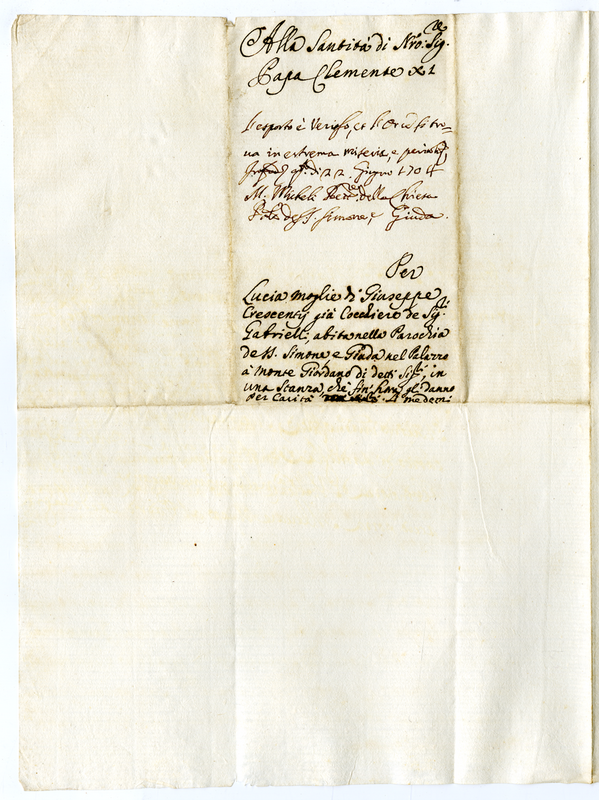 Alla Santità di Nro: Sig.re
Papa Clemente XI
L'esposto è Veriss.o, et l'Or.e si tro=
va in estrema miseria, e
q.sto dì 22. Giugno 1704
M. Micheli della Chiesa
de SS. Simone, e Giuda.
Per
Lucia moglie di Giuseppe
Crescentij già Cocchiero de Sig.ri
Gabrielli, abita nella Parochia
de SS. Simone, e Giuda nel Palazzo
à monte Giordano di detti Sig.ri, in
una Stanza, che sin' hora gl' danno
per Carità li medemi